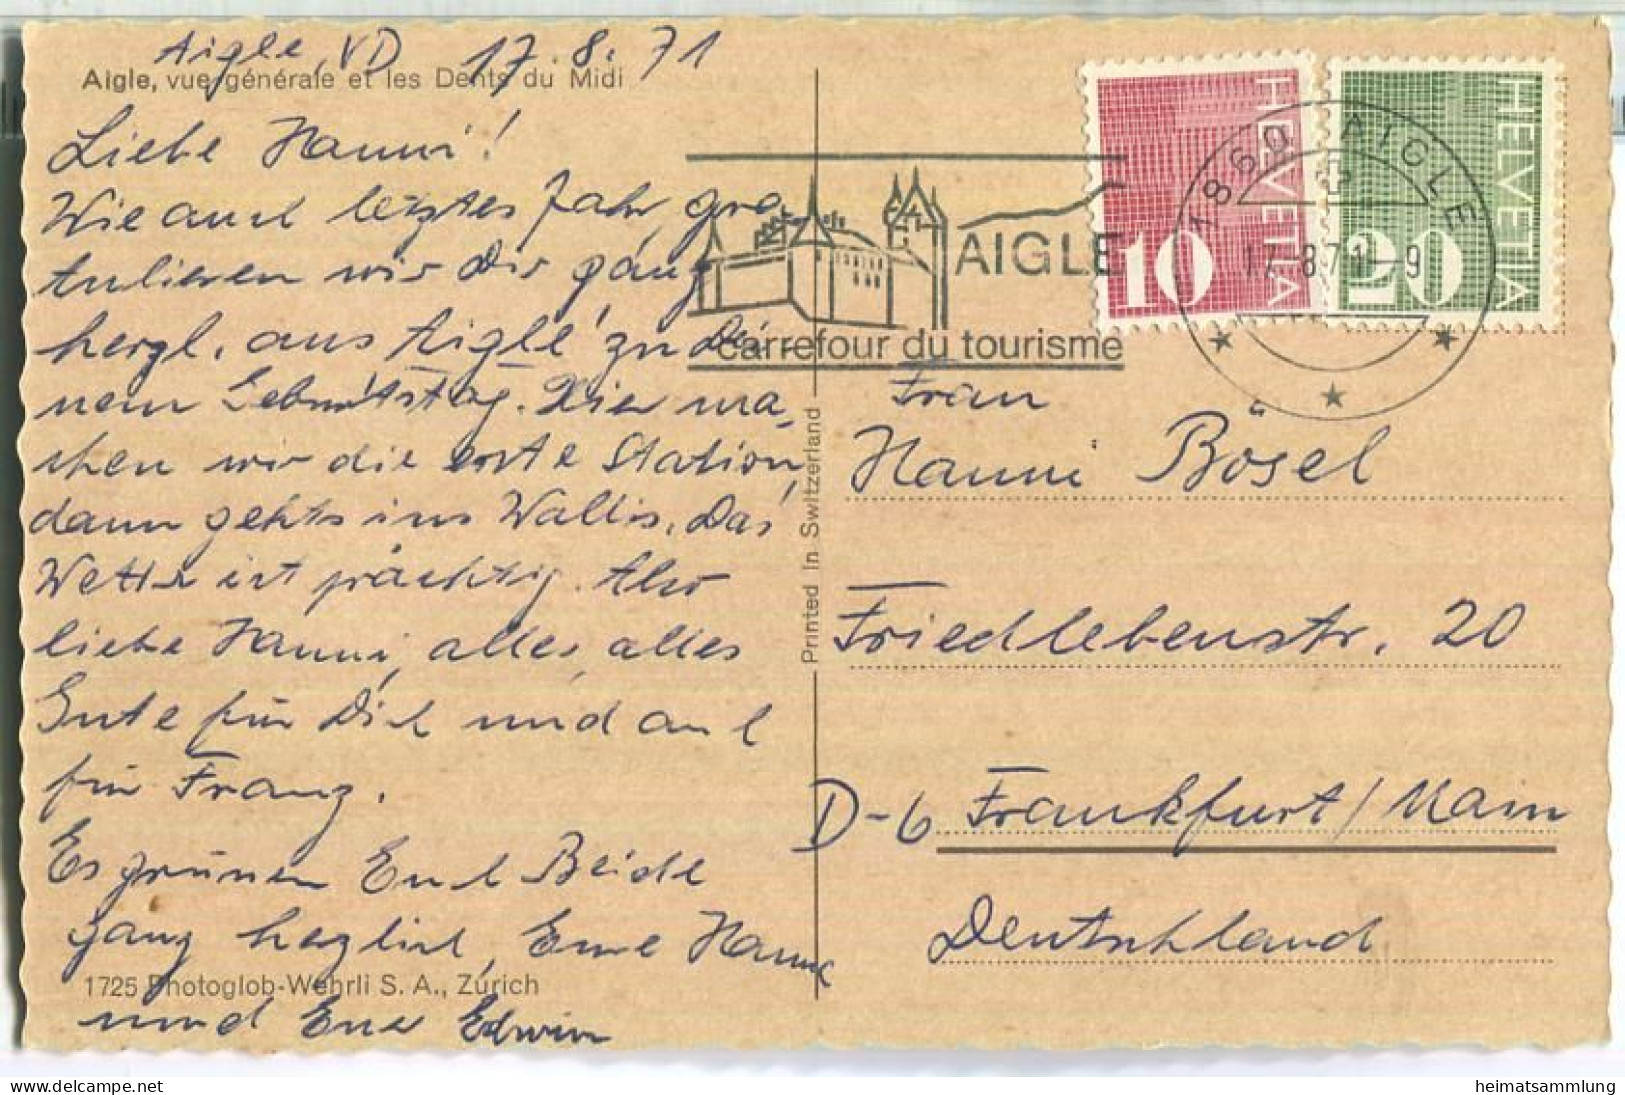 Aigle, VD 17.8.71
Aigle, vue générale et les Dents du Midi
Liebe Hanni!
Wie auch letztes Jahr, gra-
tulieren wir Dir ganz
herzl. aus Aigle zu Dei-
nem Geburtstag. Hier ma-
chen wir die erste Station,
dann gehts ins Wallis. Das
Wetter ist prächtig. Also
liebe Hanni, alles, alles
Gute für Dich und auch
für Franz.
Es grüssen Euch Beide
ganz herzlich, Eure Hanne
1725 Photoglob-Wehrli S. A., Zürich
und Euer Edwin
Printed in Switzerland
AIGLE
carrefour du tourisme
HELVETIA
10
HELVETIA
20
1860 AIGLE
17-8 71-9
Frau
Hanni Bösel
Friedlebenstr. 20
D-6 Frankfurt/Main
Deutschland
heimatsammlung
www.delcampe.net